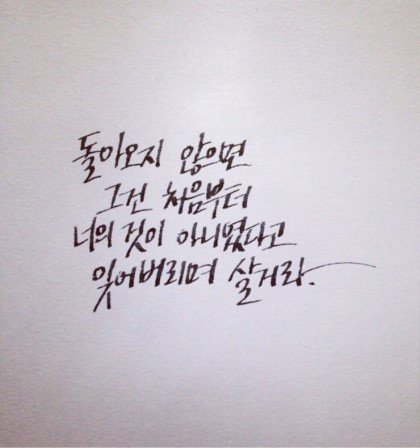 돌아오지 않으면
그건 처음부터
너의 것이 아니였다고
잊어버리며 살거라.